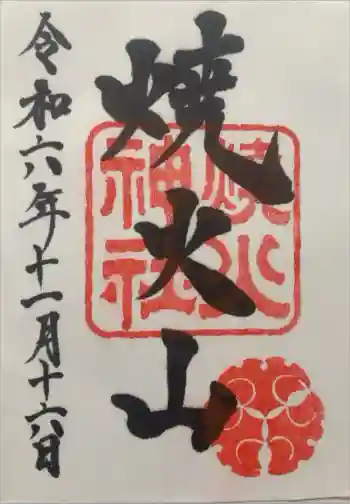 焼火山
焼火神社
令和六年十一月十六日